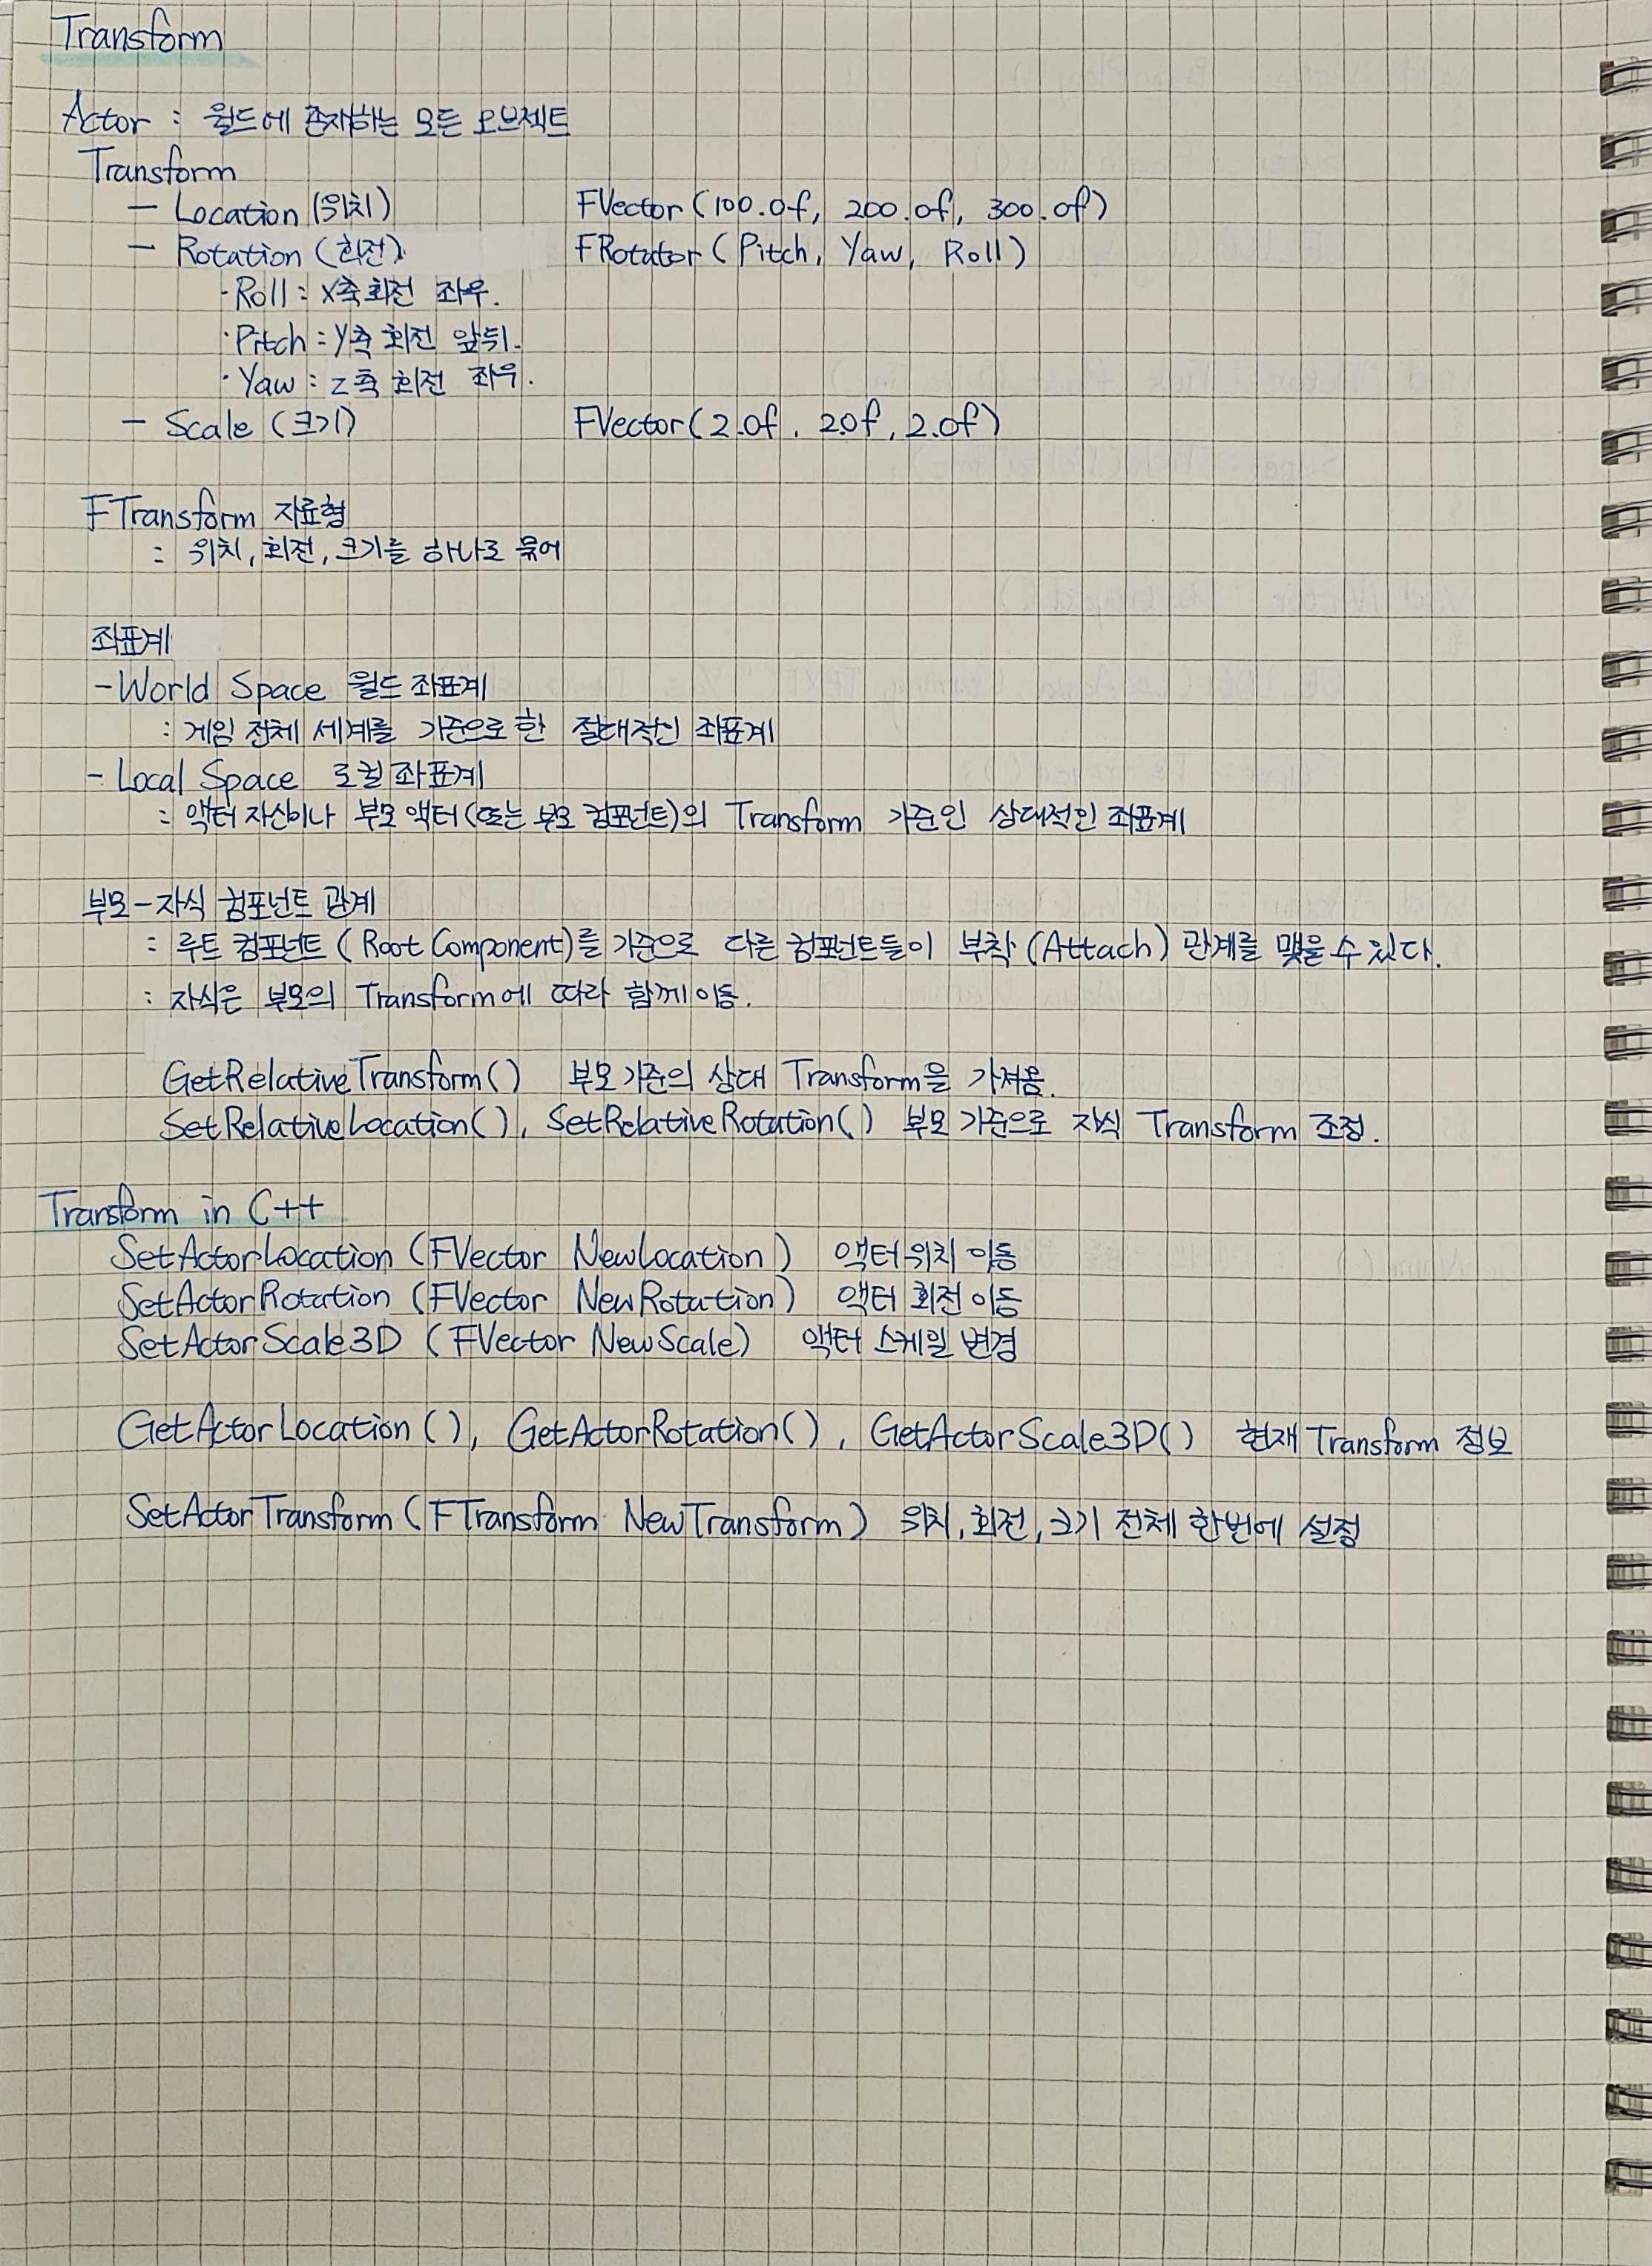 Transform
Actor : 월드에 존재하는 모든 오브젝트
Transform
- Location (위치) FVector (100.0f, 200.0f, 300.0f)
- Rotation (회전) FRotator ( Pitch, Yaw, Roll )
·Roll : X축 회전 좌우.
·Pitch : Y축 회전 앞뒤.
·Yaw : Z축 회전 좌우.
- Scale (크기) FVector(2.0f, 2.0f, 2.0f)
FTransform 자료형
: 위치, 회전, 크기를 하나로 묶어
좌표계
- World Space 월드 좌표계
: 게임 전체 세계를 기준으로 한 절대적인 좌표계
- Local Space 로컬 좌표계
: 액터 자신이나 부모 액터(또는 부모 컴포넌트)의 Transform 기준인 상대적인 좌표계
부모-자식 컴포넌트 관계
: 루트 컴포넌트 (Root Component)를 기준으로 다른 컴포넌트들이 부착 (Attach) 관계를 맺을 수 있다.
: 자식은 부모의 Transform에 따라 함께 이동.
GetRelativeTransform() 부모 기준의 상대 Transform을 가져옴.
SetRelativeLocation(), SetRelativeRotation() 부모 기준으로 자식 Transform 조정.
Transform in C++
SetActorLocation (FVector NewLocation) 액터 위치 이동
SetActorRotation (FVector NewRotation) 액터 회전 이동
SetActorScale3D (FVector NewScale) 액터 스케일 변경
GetActorLocation(), GetActorRotation(), GetActorScale3D() 현재 Transform 정보
SetActorTransform (FTransform NewTransform) 위치, 회전, 크기 전체 한번에 설정